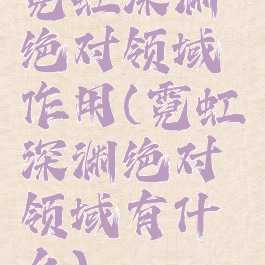 霓虹深渊
绝对领域
作用(霓虹
深渊绝对
领域有什
么)